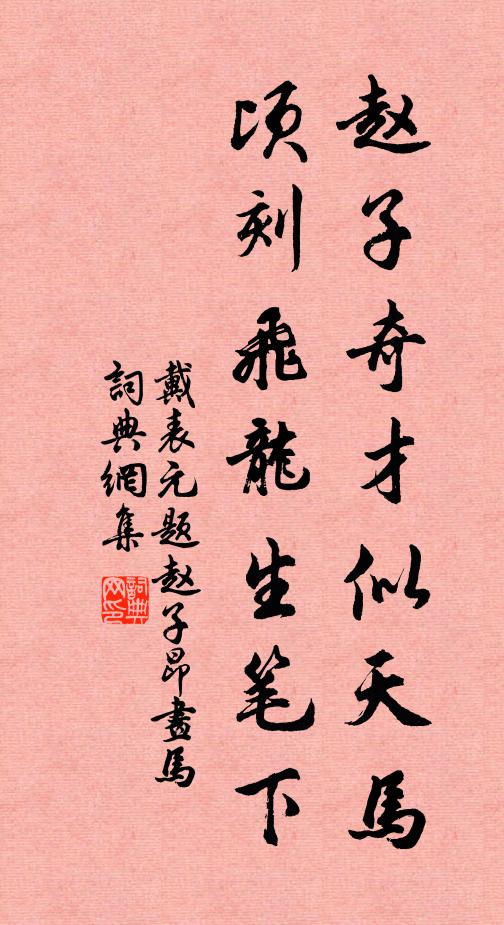 赵子奇才似天馬
頃刻飛龍生笔下
戴表元题赵子昂畫馬
詞典網集
詞典
网印